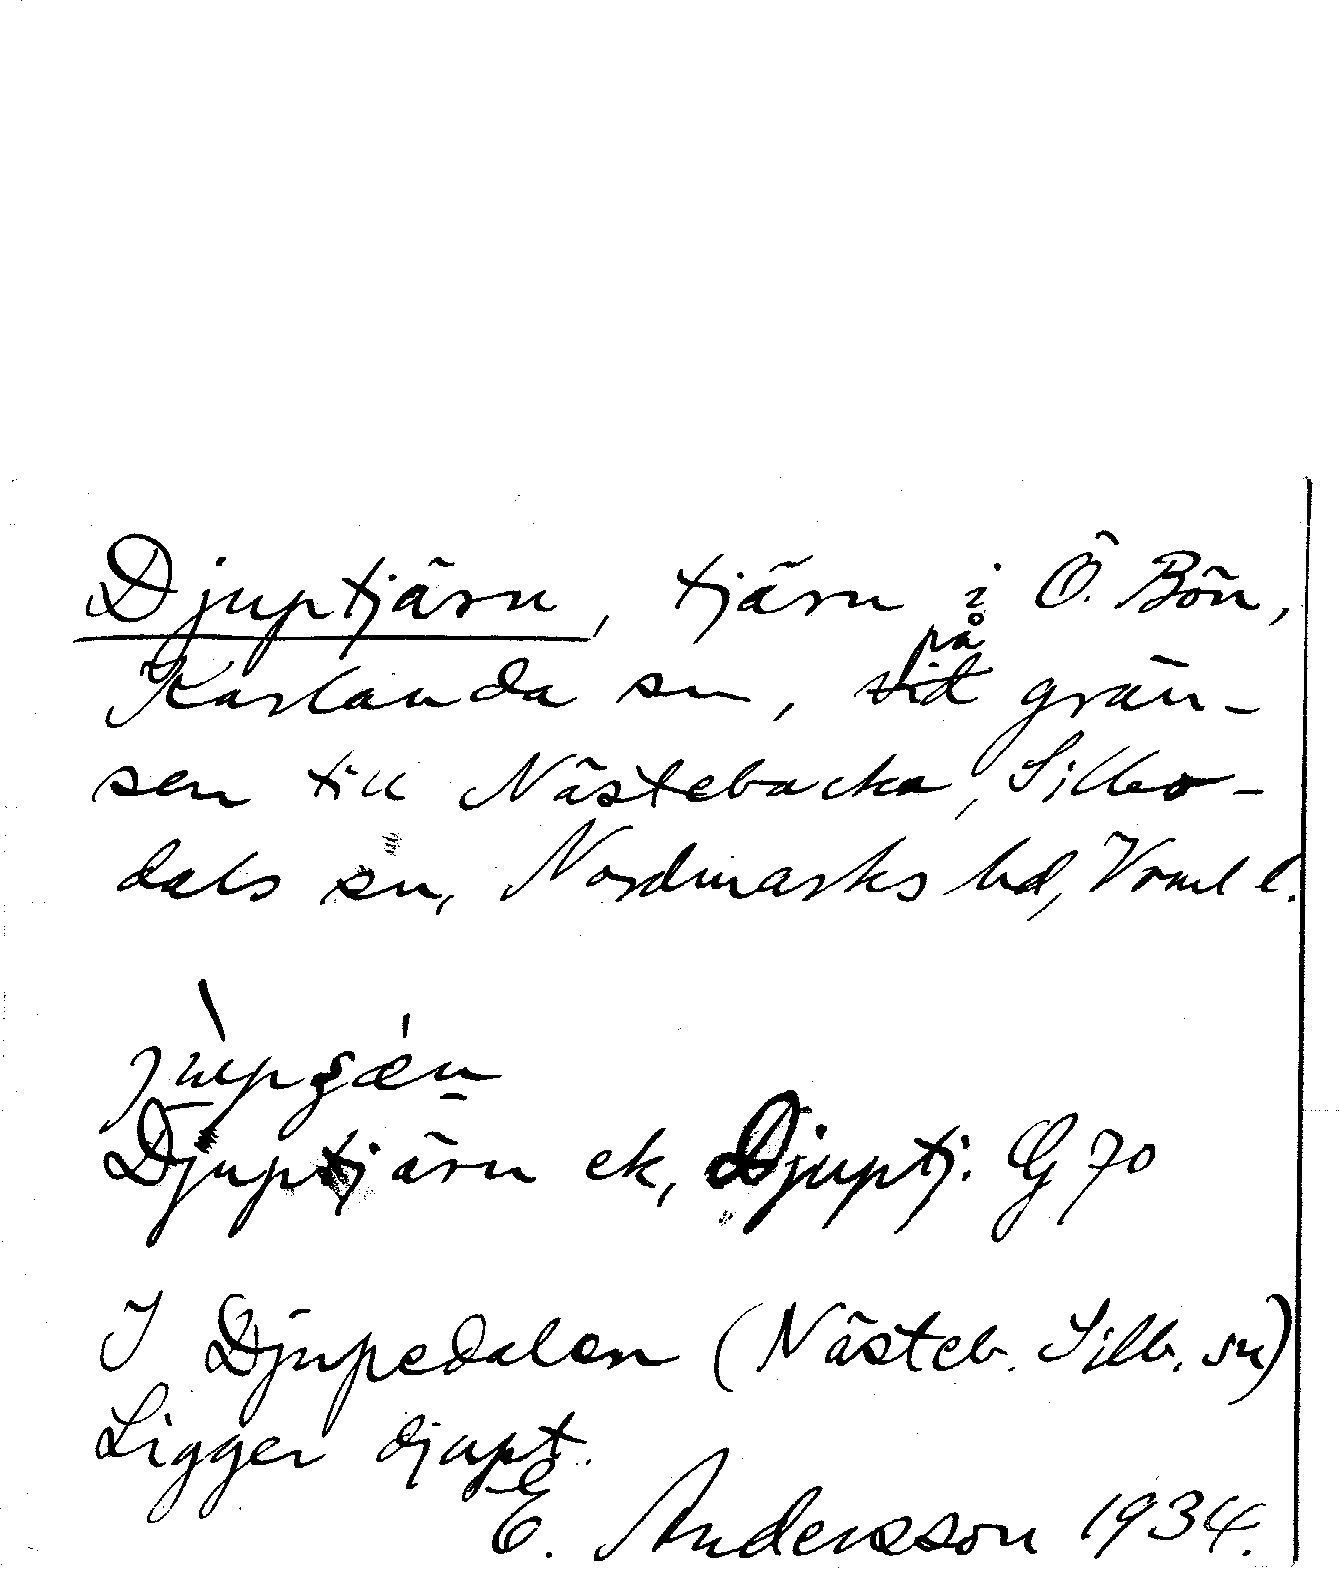 Djuptjärn, tjärn i Ö. Bön,
Karlanda sn, vid på grän-
sen till Nästebacka, Sillbo-
dals sn, Nordmarks hd, Vrml l.
Djuptjärn ek, Djuptj. G 70
I Djupedalen (Nästeb. Sillb. sn)
Ligger djupt.
E. Andersson 1934.